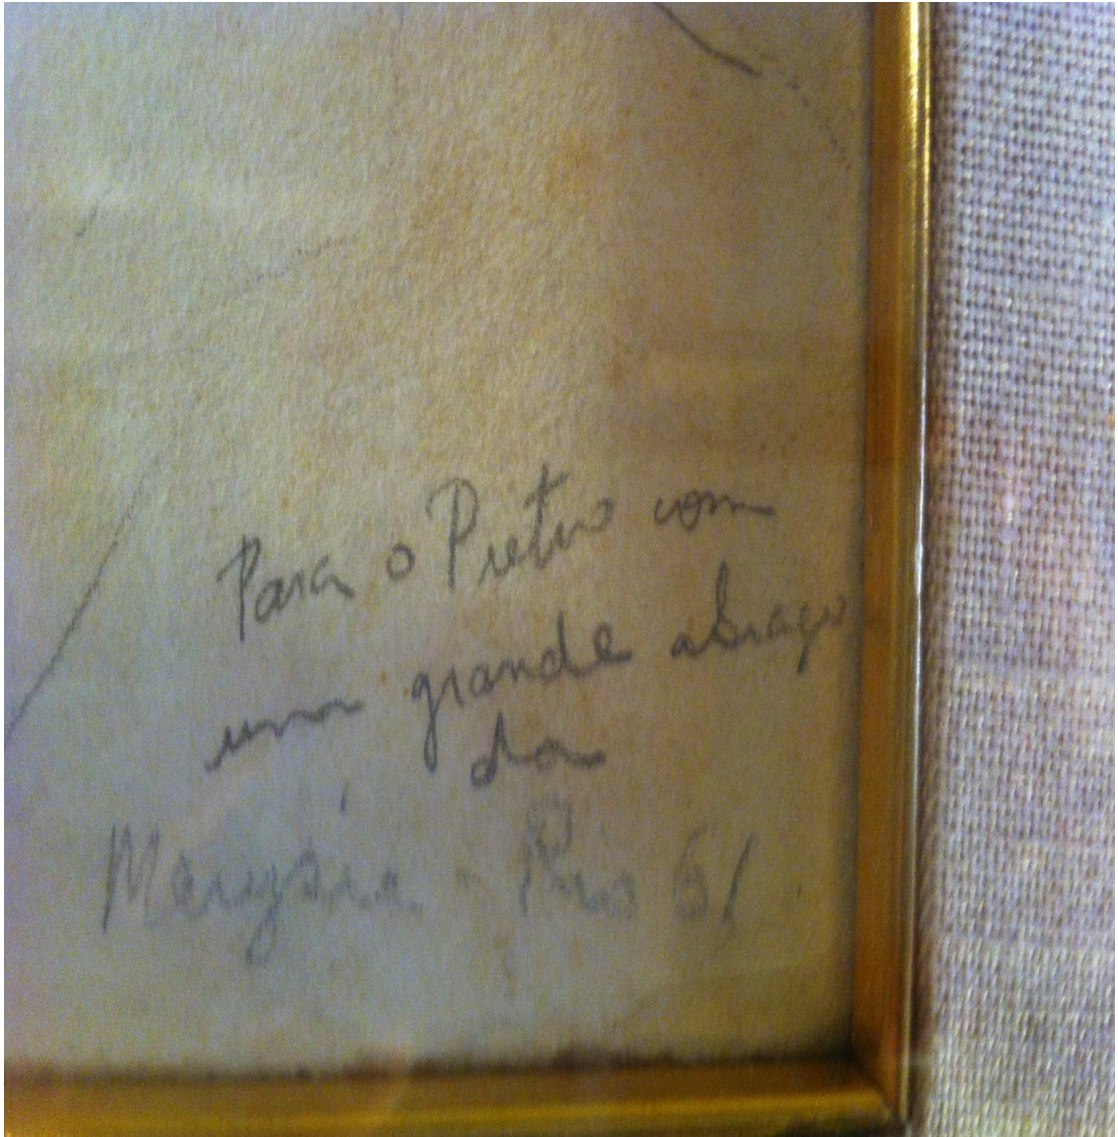 Para o Pietro com
um grande abraço
da
- Rio 61